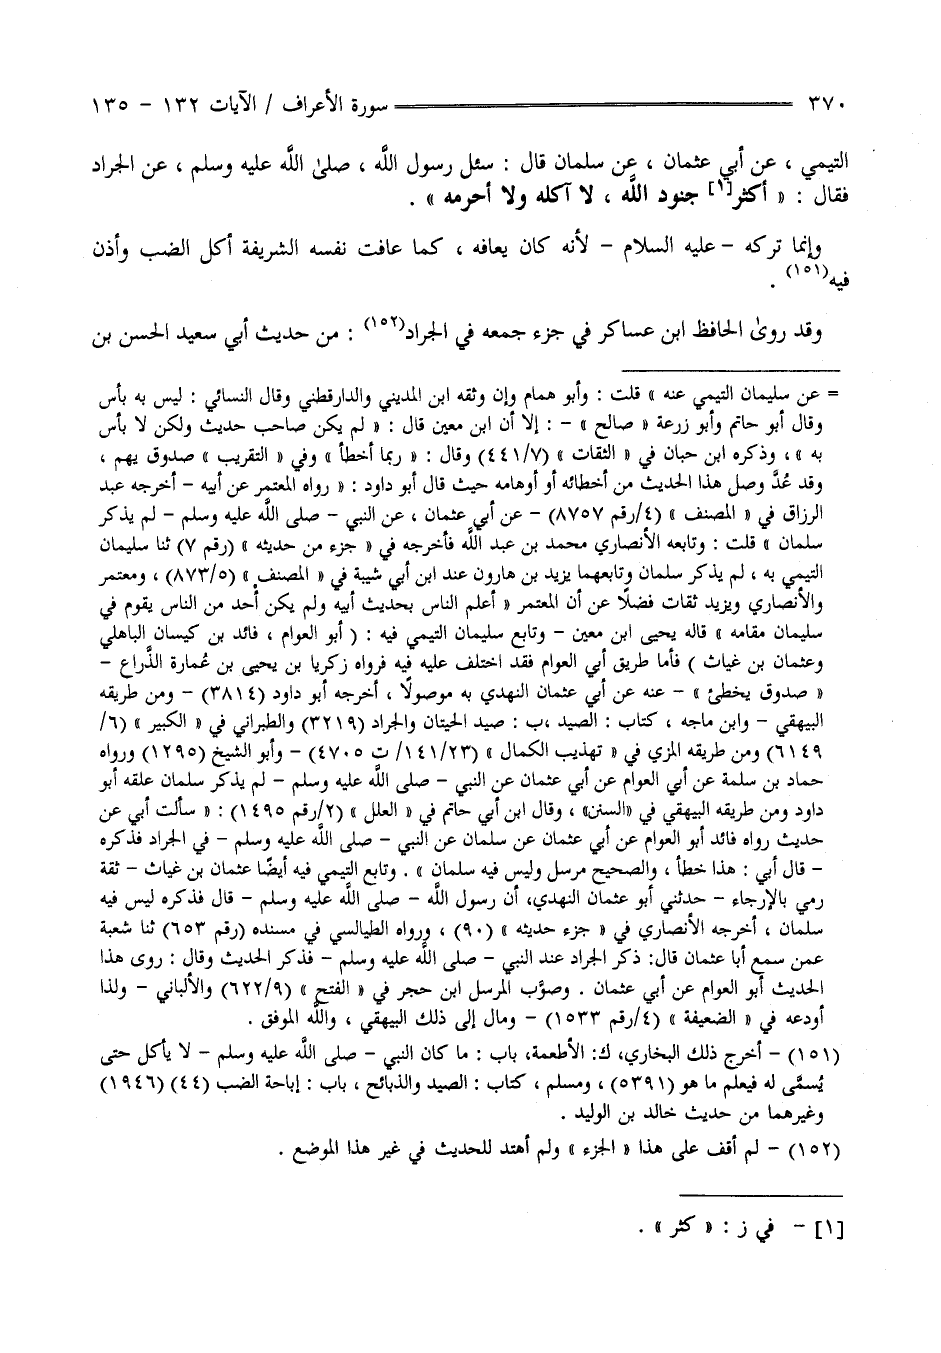 ٣٧٠ سورة الأعراف / الآيات ١٣٢ - ١٣٥
التيمي ، عن أبي عثمان ، عن سلمان قال : سئل رسول اللَّه ، صلىٰ اللَّه عليه وسلم ، عن الجراد
فقال : « أكثر[١] جنود اللَّه ، لا آكله ولا أحرمه » .
وإنما تركه - عليه السلام - لأنه كان يعافه ، كما عافت نفسه الشريفة أكل الضب وأذن
فيه(١٥١) .
وقد روىٰ الحافظ ابن عساكر في جزء جمعه في الجراد(١٥٢) : من حديث أبي سعيد الحسن بن
= عن سليمان التيمي عنه » قلت : وأبو همام وإن وثقه ابن المديني والدارقطني وقال النسائي : ليس به بأس
وقال أبو حاتم وأبو زرعة « صالح » - : إلا أن ابن معين قال : « لم يكن صاحب حديث ولكن لا بأس
به » ، وذكره ابن حبان في « الثقات » (٤٤١/٧) وقال : « ربما أخطأ » وفي « التقريب » صدوق يهم ،
وقد عُدَّ وصل هذا الحديث من أخطائه أو أوهامه حيث قال أبو داود : « رواه المعتمر عن أبيه - أخرجه عبد
الرزاق في « المصنف » (٤/رقم ٨٧٥٧) - عن أبي عثمان ، عن النبي - صلى اللَّه عليه وسلم - لم يذكر
سلمان » قلت : وتابعه الأنصاري محمد بن عبد اللَّه فأخرجه في « جزء من حديثه » (رقم ٧) ثنا سليمان
التيمي به ، لم يذكر سلمان وتابعهما يزيد بن هارون عند ابن أبي شيبة في « المصنف » (٨٧٣/٥) ، ومعتمر
والأنصاري ويزيد ثقات فضلًا عن أن المعتمر « أعلم الناس بحديث أبيه ولم يكن أحد من الناس يقوم في
سليمان مقامه » قاله يحيى ابن معين - وتابع سليمان التيمي فيه : ( أبو العوام ، فائد بن كيسان الباهلي
وعثمان بن غياث ) فأما طريق أبي العوام فقد اختلف عليه فيه فرواه زكريا بن يحيى بن عُمارة الذَّراع -
« صدوق يخطئ » - عنه عن أبي عثمان النهدي به موصولًا ، أخرجه أبو داود (٣٨١٤) - ومن طريقه
البيهقي - وابن ماجه ، كتاب : الصيد ،ب : صيد الحيتان والجراد (٣٢١٩) والطبراني في « الكبير » (٦/
٦١٤٩) ومن طريقه المزي في « تهذيب الكمال » (١٤١/٢٣/ ت ٤٧٠٥) - وأبو الشيخ (١٢٩٥) ورواه
حماد بن سلمة عن أبي العوام عن أبي عثمان عن النبي - صلى اللَّه عليه وسلم - لم يذكر سلمان علقه أبو
داود ومن طريقه البيهقي في «السنن» ، وقال ابن أبي حاتم في « العلل » (٢/رقم ١٤٩٥) : « سألت أبي عن
حديث رواه فائد أبو العوام عن أبي عثمان عن سلمان عن النبي - صلى اللَّه عليه وسلم - في الجراد فذكره
- قال أبي : هذا خطأ ، والصحيح مرسل وليس فيه سلمان » . وتابع التيمي فيه أيضًا عثمان بن غياث - ثقة
رمي بالإرجاء - حدثني أبو عثمان النهدي، أن رسول اللَّه - صلى اللَّه عليه وسلم - قال فذكره ليس فيه
سلمان ، أخرجه الأنصاري في « جزء حديثه » (٩٠) ، ورواه الطيالسي في مسنده (رقم ٦٥٣) ثنا شعبة
عمن سمع أبا عثمان قال: ذكر الجراد عند النبي - صلى اللَّه عليه وسلم - فذكر الحديث وقال : روى هذا
الحديث أبو العوام عن أبي عثمان . وصوَّب المرسل ابن حجر في « الفتح » (٦٢٢/٩) والألباني - ولذا
أودعه في « الضعيفة » (٤/رقم ١٥٣٣) - ومال إلى ذلك البيهقي ، واللَّه الموفق .
(١٥١) - أخرج ذلك البخاري، ك: الأطعمة، باب : ما كان النبي - صلى اللَّه عليه وسلم - لا يأكل حتى
يُسمَّى له فيعلم ما هو (٥٣٩١) ، ومسلم ، كتاب : الصيد والذبائح ، باب : إباحة الضب (٤٤) (١٩٤٦)
وغيرهما من حديث خالد بن الوليد .
(١٥٢) - لم أقف على هذا « الجزء » ولم أهتد للحديث في غير هذا الموضع .
[١] - في ز : « كثر » .